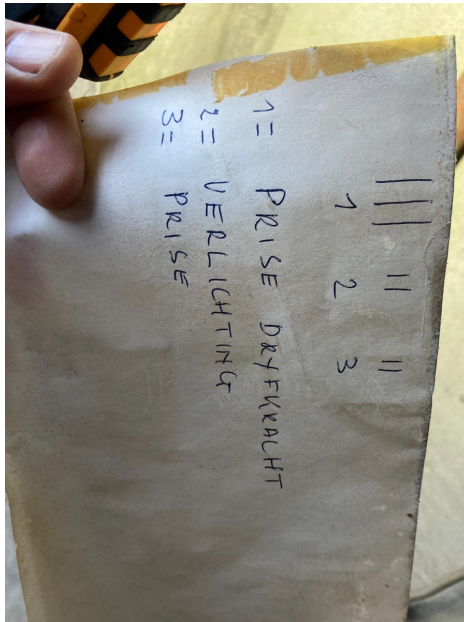 ||| || ||
1 2 3
1= PRISE DRYFKRACHT
2= VERLICHTING
3= PRISE